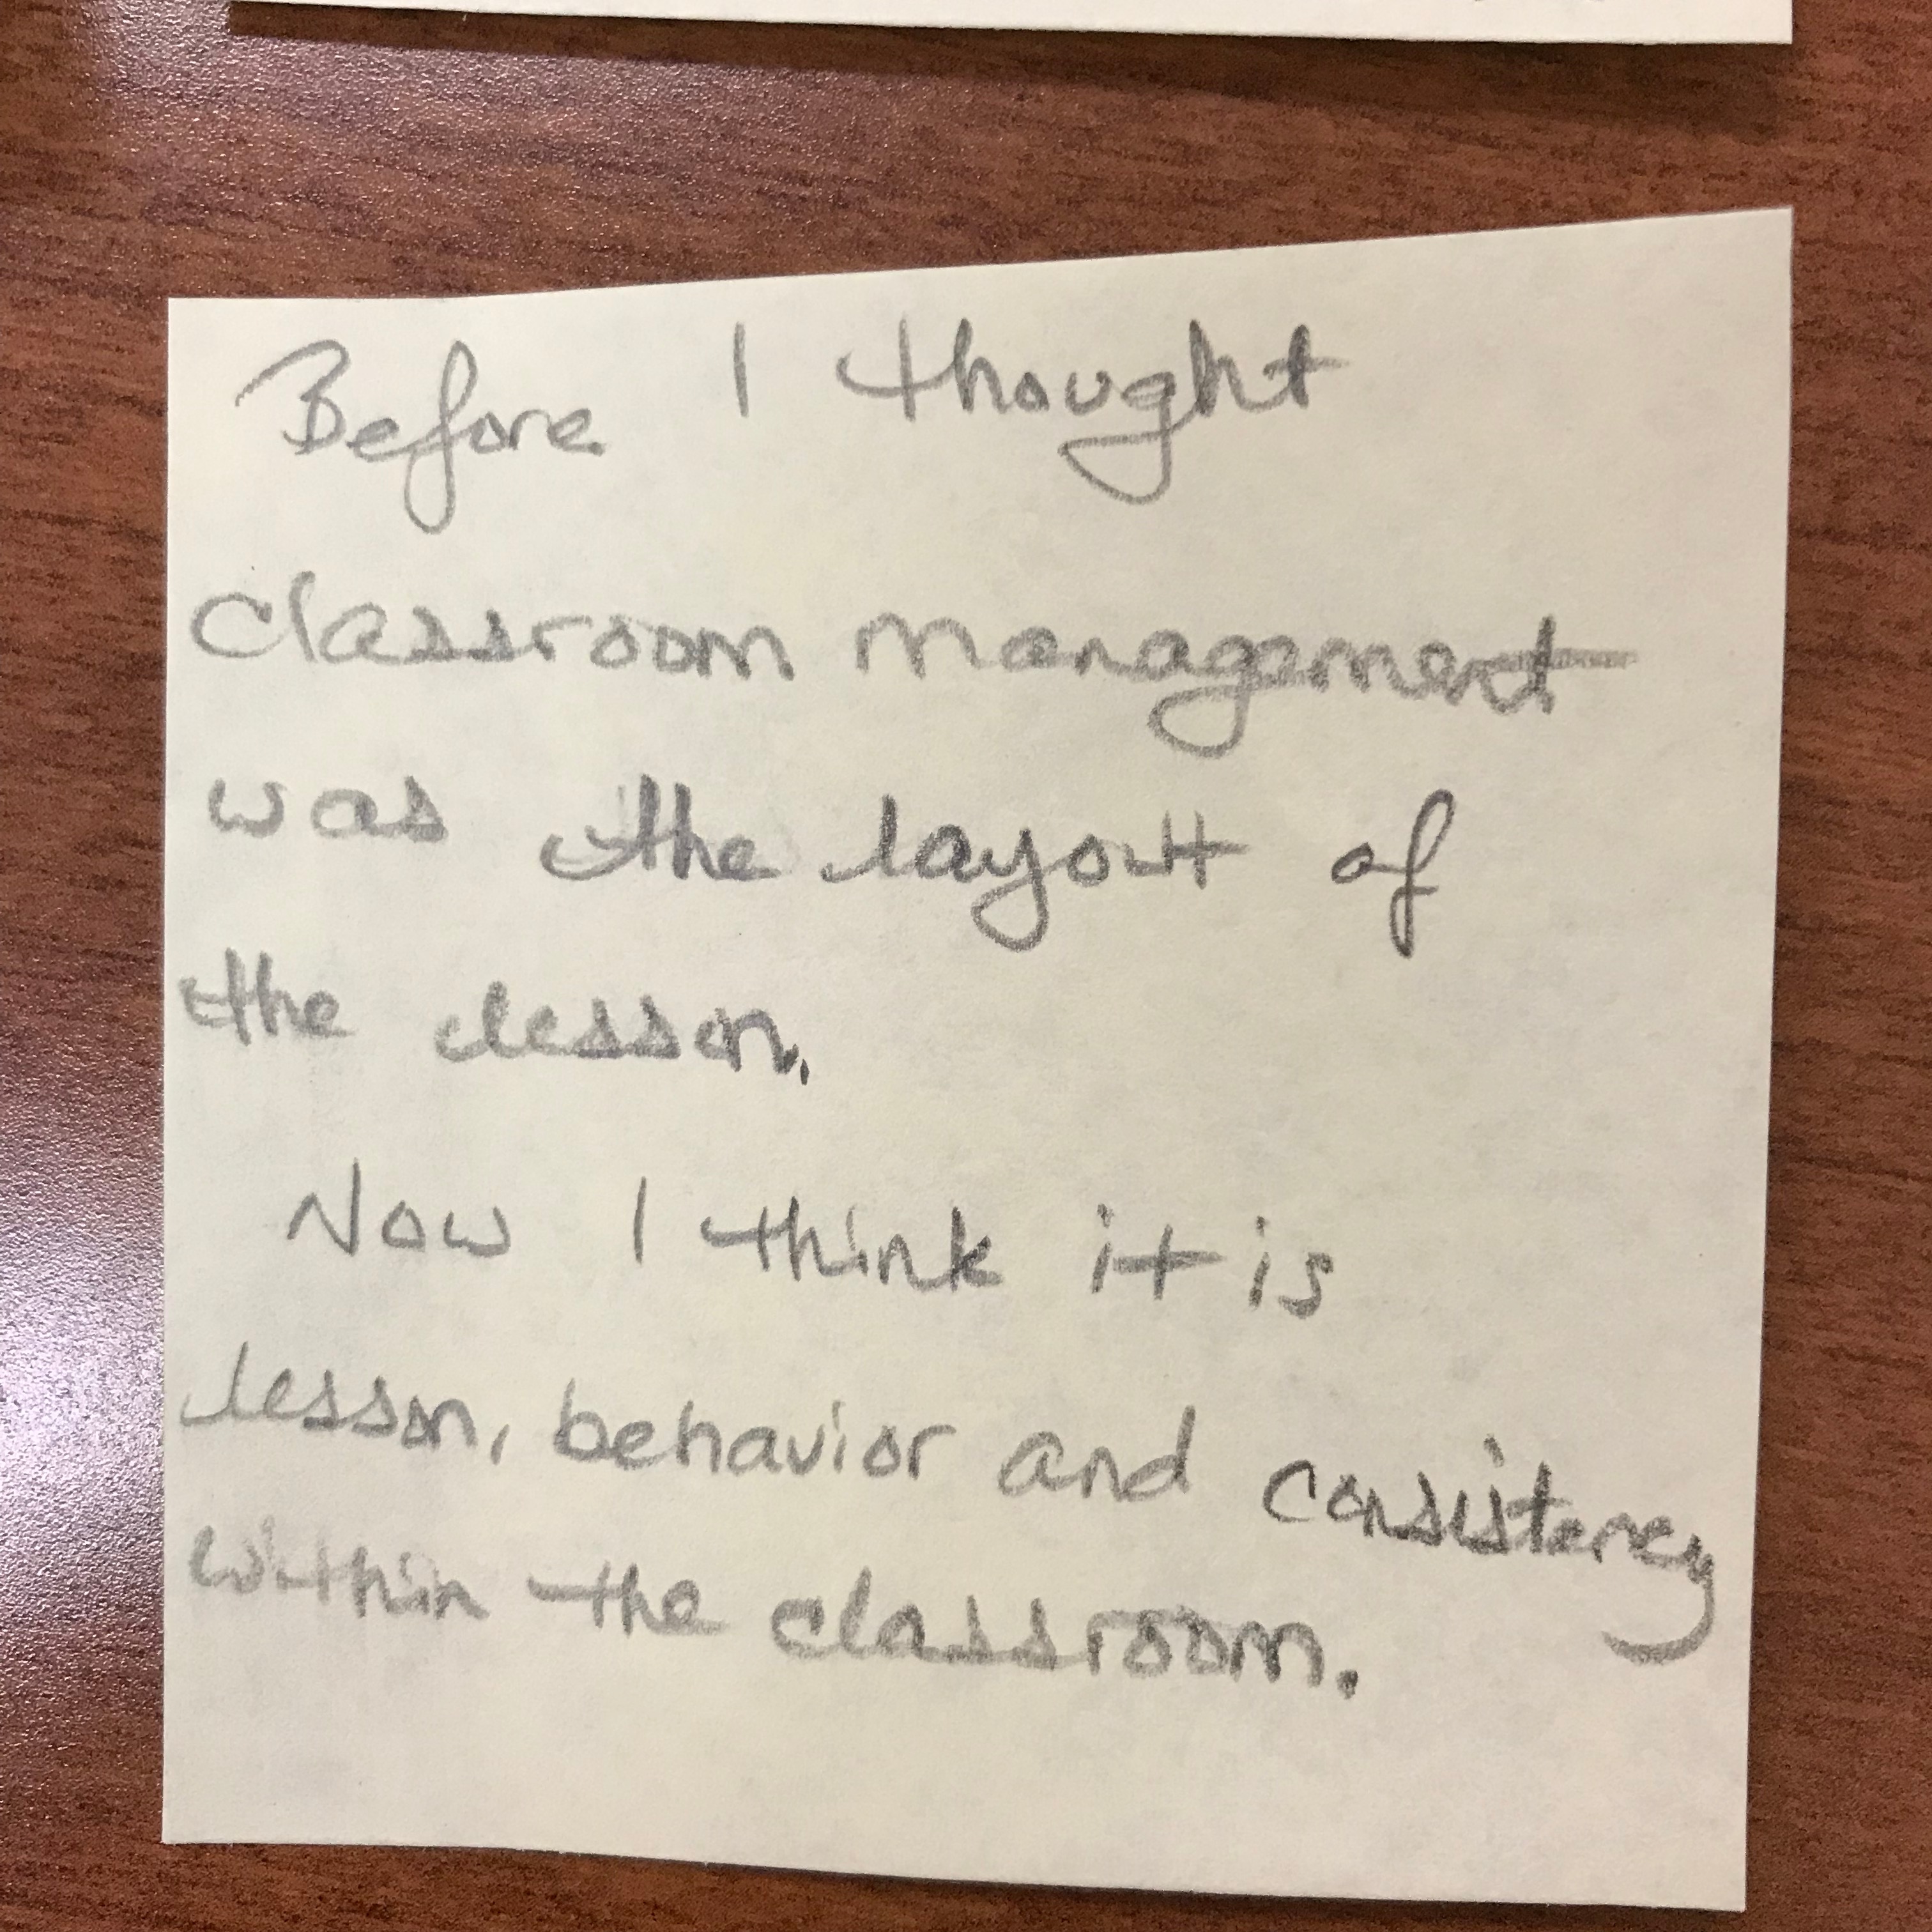 Before I thought
classroom management
was the layout of
the lesson.
Now I think it is
lesson, behavior and consistency
within the classroom.